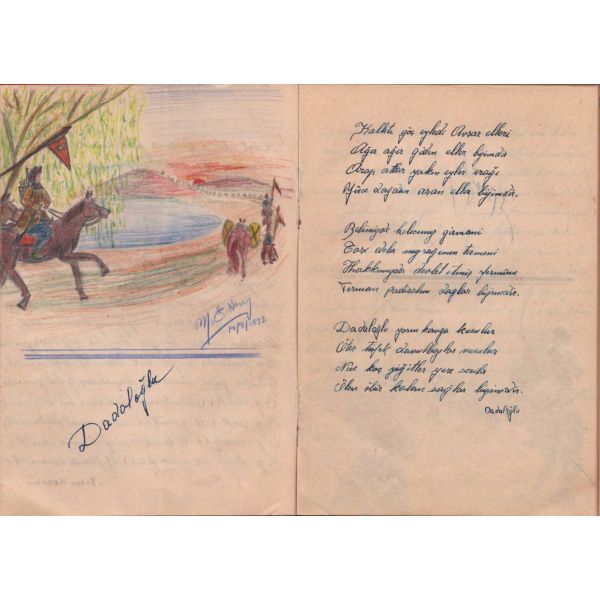 14/3/1972
Dadaloğlu
Kalktı göç eyledi Avşar elleri
Ağır ağır giden eller bizimdir
Arap atlar yakın eyler ırağı
Yüce dağdan aşan eller bizimdir.
Belimizde kılıcımız girmani
Taşı deler mızrağımın temeni
Hakkımızda devlet etmiş fermanı
Ferman padişahın dağlar bizimdir.
Dadaloğlu yarın kavga kurulur
Öter tüfek davulbazlar vurulur
Nice koç yiğitler yere serilir
Ölen ölür kalan sağlar bizimdir.
Dadaloğlu